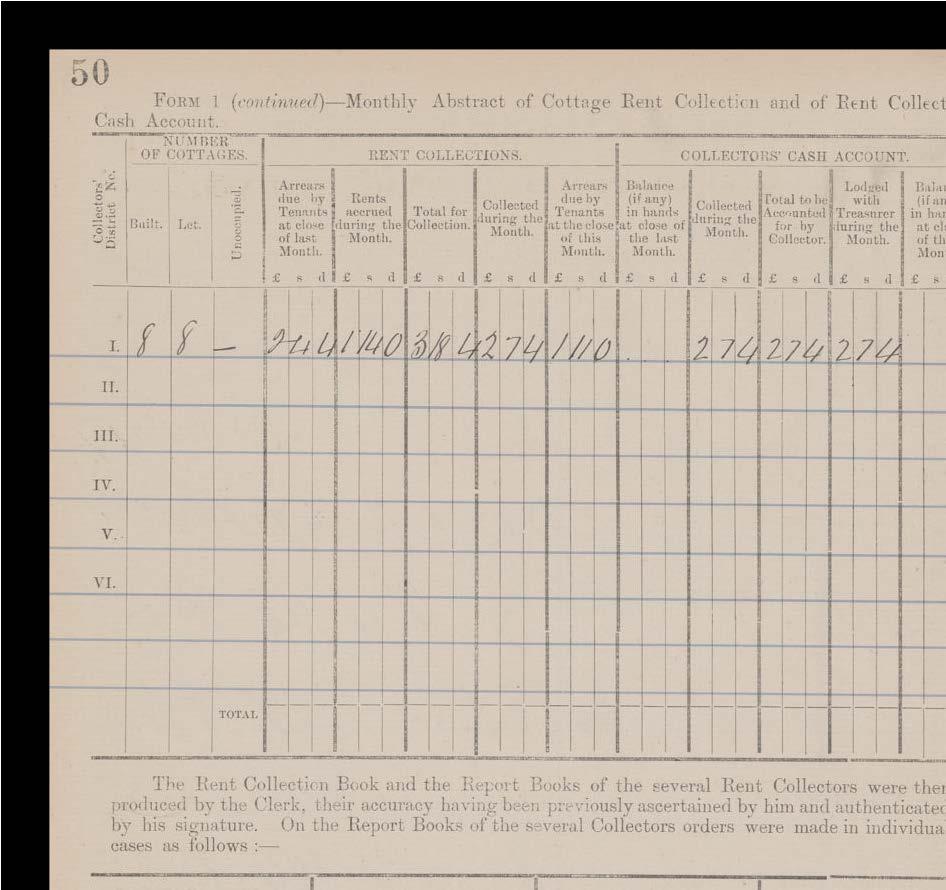 50
FORM 1 (continued)—Monthly Abstract of Cottage Rent Collection and of Rent Collect
Cash Account.
Collectors' District No.
NUMBER
OF COTTAGES.
Built.
Let.
Unoccupied.
RENT COLLECTIONS.
Arrears
due by
Tenants
at close
of last
Month.
Rents
accrued
during the
Month.
Total for
Collection.
Collected
during the
Month.
Arrears
due by
Tenants
at the close
of this
Month.
COLLECTORS' CASH ACCOUNT.
Balance
(if any)
in hands
at close of
the last
Month.
Collected
during the
Month.
Total to be
Accounted
for by
Collector.
Lodged
with
Treasurer
during the
Month.
Balan
(if an
in han
at clo
of th
Mon
£ s d £ s d £ s d £ s d £ s d £ s d £ s d £ s d £ s d £ s
I. 8 8 — 2 4 4 1 14 0 3 18 4 2 7 4 1 11 0 . . . 2 7 4 2 7 4 2 7 4
II.
III.
IV.
V.
VI.
TOTAL
The Rent Collection Book and the Report Books of the several Rent Collectors were then
produced by the Clerk, their accuracy having been previously ascertained by him and authenticated
by his signature. On the Report Books of the several Collectors orders were made in individual
cases as follows :—